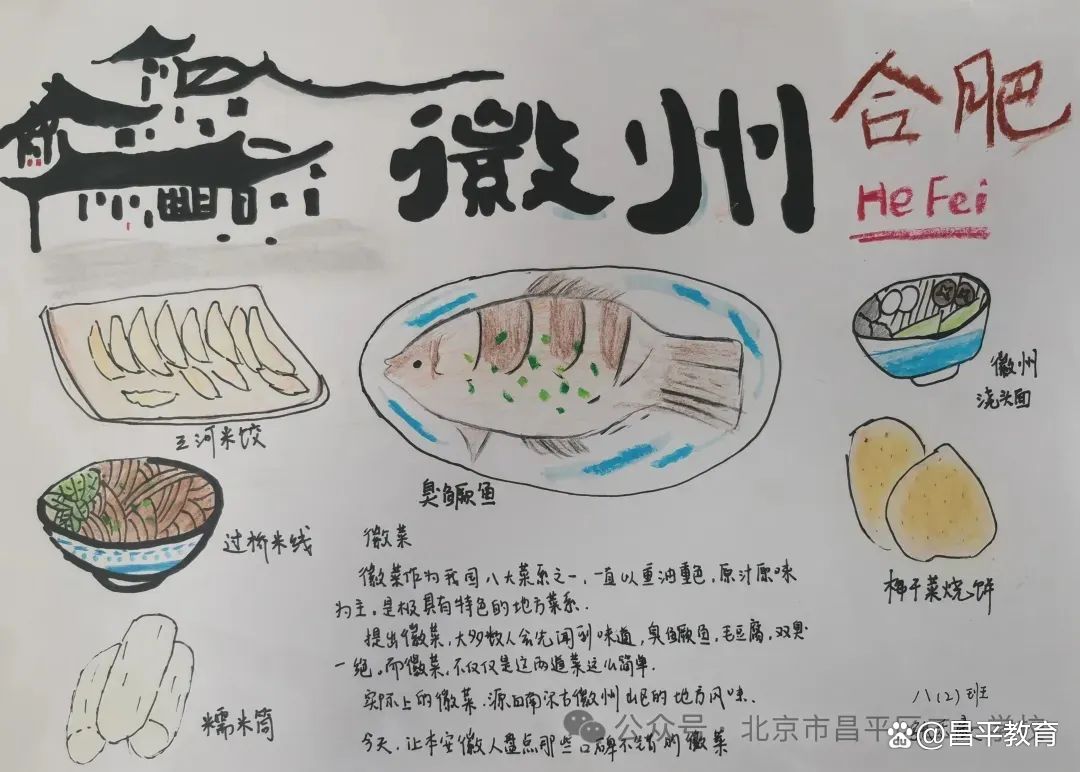 徽州
合肥
HeFei
三河米饺
臭鳜鱼
徽州
浇头面
过桥米线
梅干菜烧饼
糯米筒
徽菜
徽菜作为我国八大菜系之一,一直以重油重色,原汁原味
为主,是极具有特色的地方菜系.
提出徽菜,大多数人会先闻到味道,臭鳜鱼,毛豆腐,双臭
一绝。而徽菜,不仅仅是这两道菜这么简单.
实际上的徽菜.源自南宋古徽州山区的地方风味.
今天,让本安徽人盘点那些口碑不错的徽菜
八(2)班
公众号·北京市昌平
学校
@昌平教育